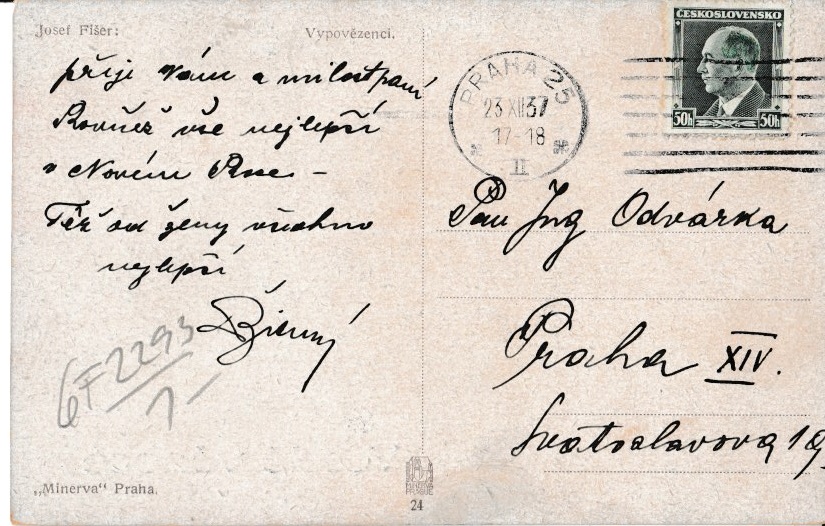 Josef Fišer:
Vypovězenci.
přeje Vám a milostpaní
vše nejlepší
v Novém Roce –
Též od ženy všechno
nejlepší
6F2293
1-
„Minerva“ Praha.
ČESKOSLOVENSKO
50h 50h
PRAHA 25
23 XII 37
17-18
II
Pan Ing Odvárka
Praha XIV.
Svatoslavova
MINERVA
PRAGUE
24